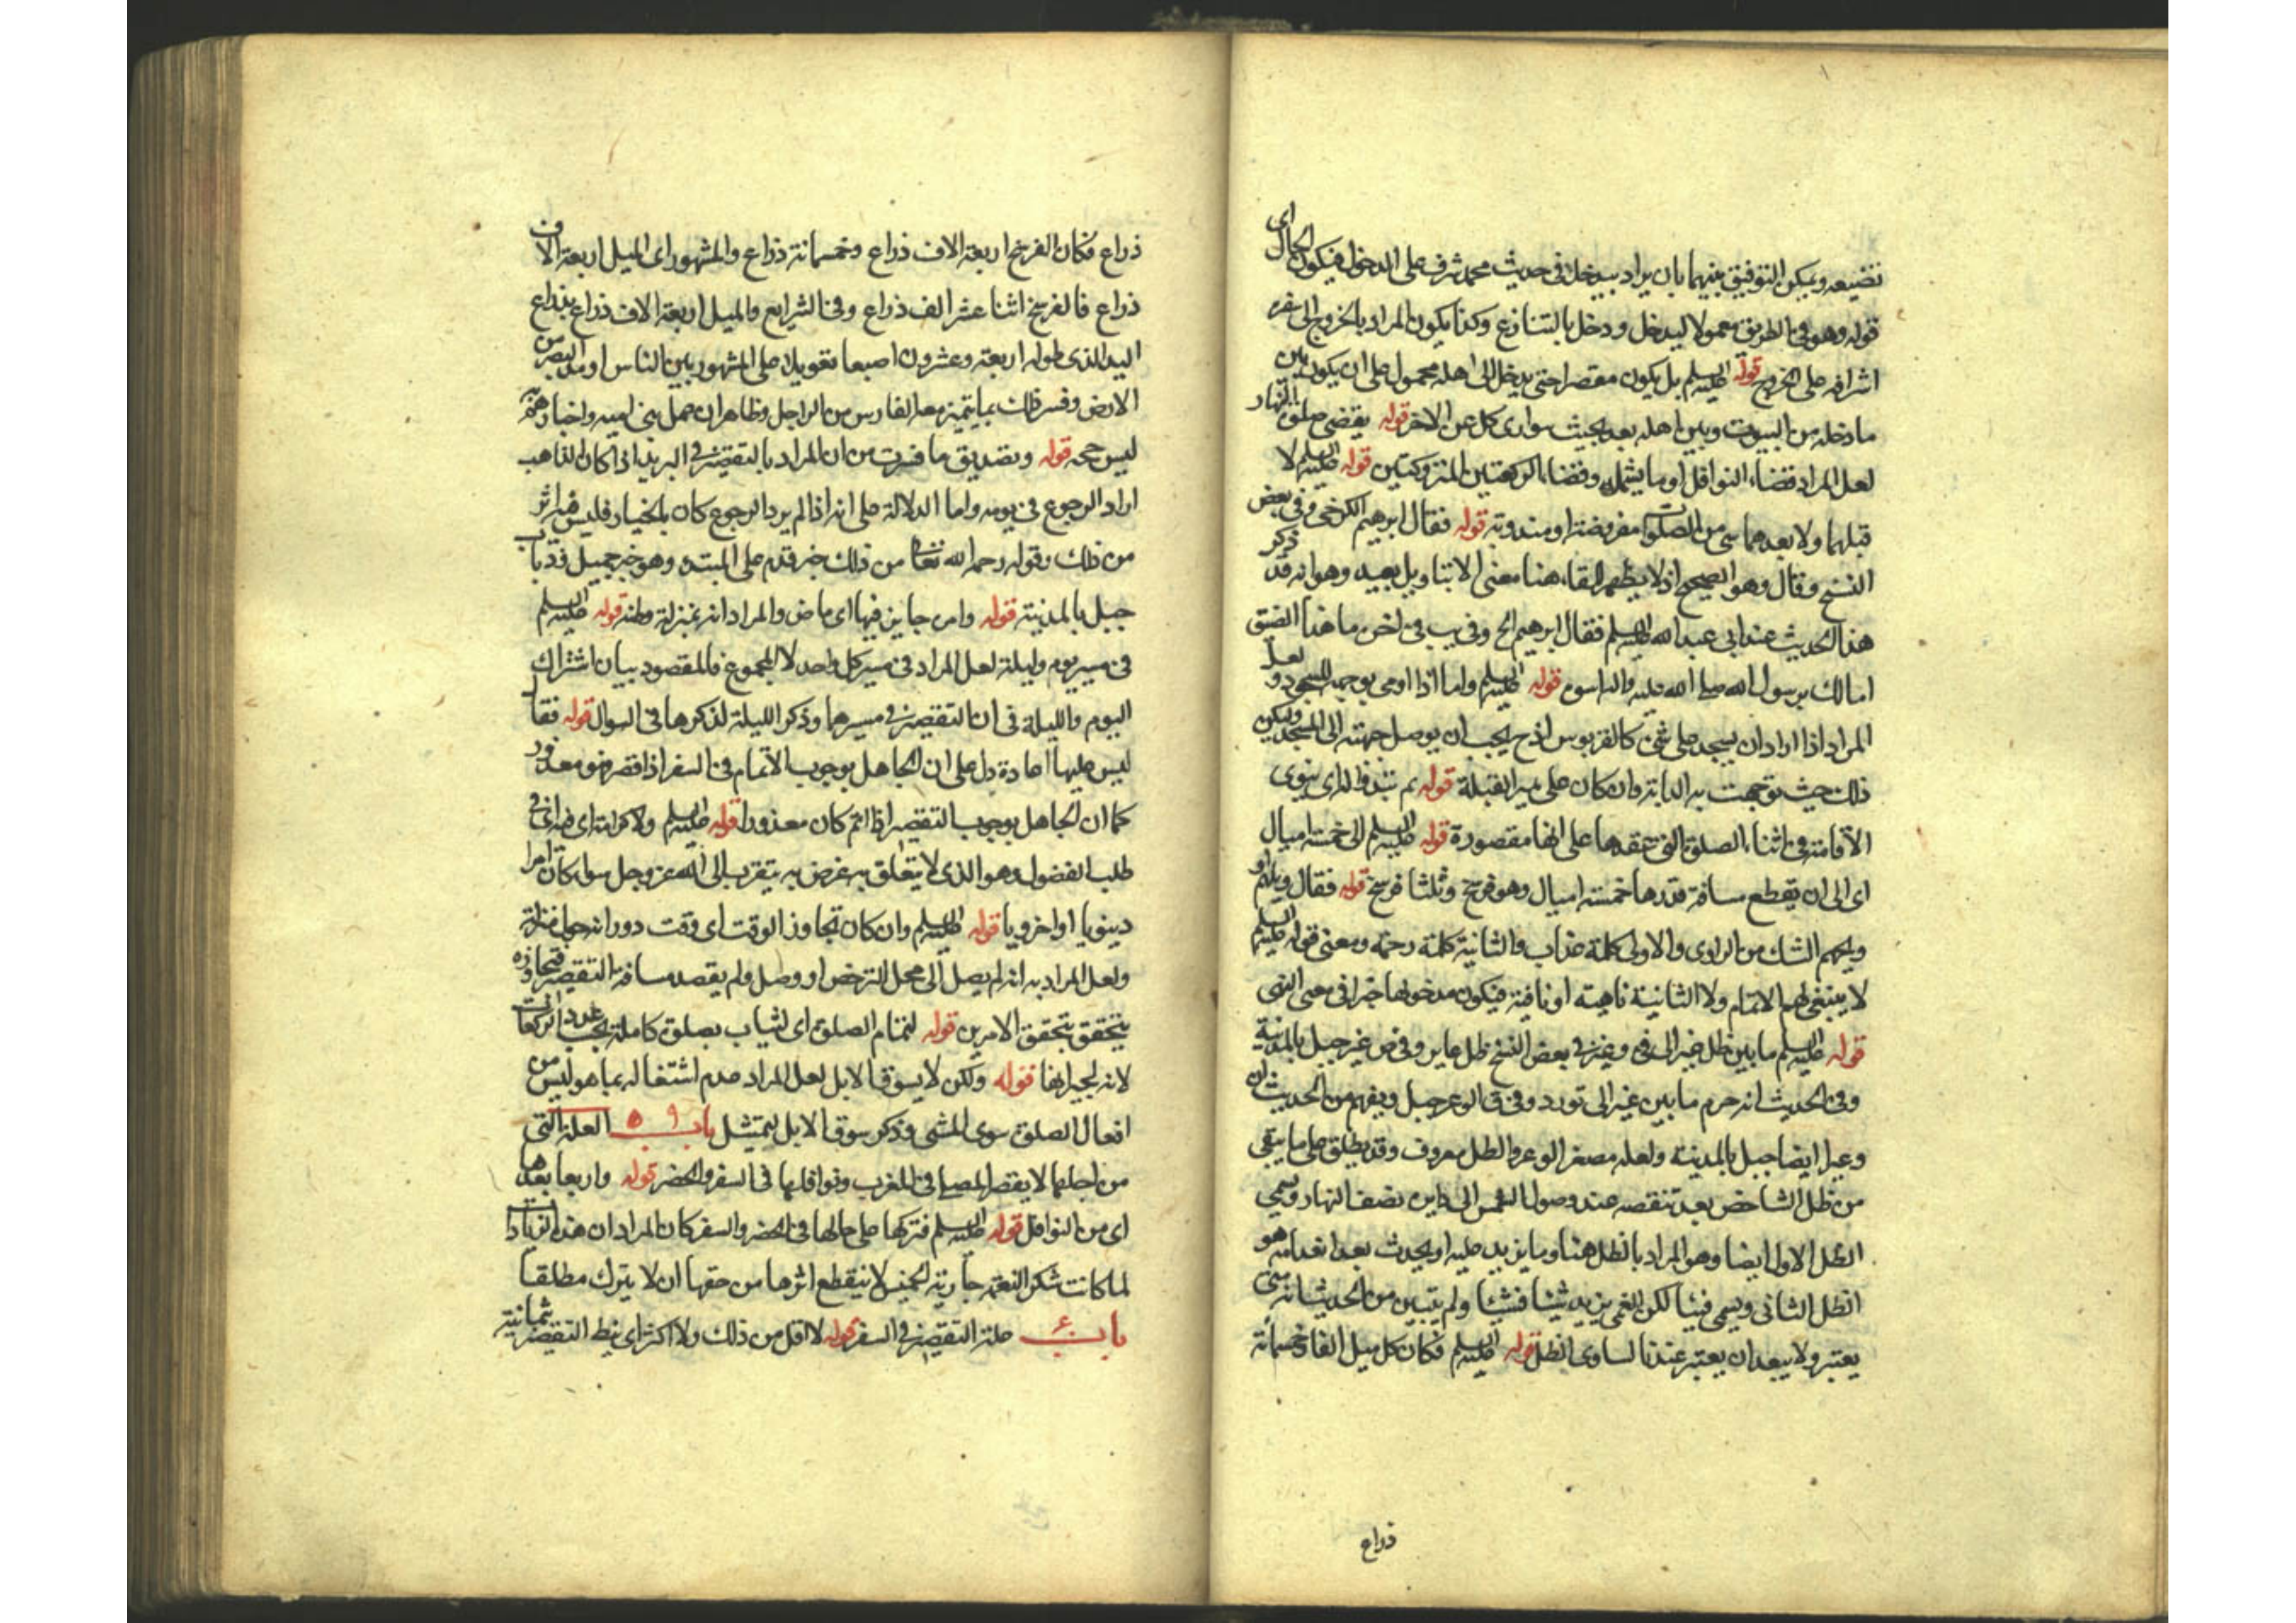 تضيعه ويمكن التوفيق بينهما بان يراد بيدخل في حديث محمد شرف على الدخول فيكون الحال اى
قوله وهو في الطريق معمولا ليدخل ودخل بالتنازع وكذا يكون المراد بالخروج الى سفره
اشرافه على الخروج قوله عليه السلم بل يكون مقصرا حتى يدخل الى اهله محمول على ان يكون بين
ما دخله من البيوت وبين اهله بعد بحيث سوارى كل عن الاخر قوله يقضى صلوة النهار
لعل المراد قضاء النوافل او ما يشمله وقضاء الركعتين المتروكتين قوله عليه السلم لا
قبلهما ولا بعدهما شى من الصلوات مفروضة او مندوبة قوله فقال ابرهيم الكرخى وفى بعض
النسخ وقال وهو الصحيح اذ لا يظهر للفاء هنا معنى الا بتاويل بعيد وهو انه قد ذكر
هذا الحديث عند ابى عبد الله عليه السلم فقال ابرهيم الخ وفى يب فى اخره ما هذا الضيق
اما لك برسول الله صلى الله عليه واله اسوة قوله عليه السلم واما اذا اومى يوجه للسجود و لعل
المراد اذا اراد ان يسجد على شئ كالقربوس اذ ح يجب ان يوصل جبهته الى المسجد وليكن
ذلك حيث توجهت به الدابة وان كان على غير القبلة قوله ثم تبدو له اى ينوى
الاقامة فى اثناء الصلوة التى عقدها على انها مقصورة قوله عليه السلم الى خمسة اميال
اى الى ان يقطع مسافة قدرها خمسة اميال وهو فرسخ وثلثا فرسخ قوله فقال ويلهم او
ويحهم الشك من الراوى والاولى كلمة عذاب والثانية كلمة رحمة ومعنى قوله عليه السلم
لا ينبغى لهم الاتمام ولا الثانية ناهية او نافية فيكون مدخولها خبرا فى معنى النهى
قوله عليه السلم ما بين ظل عير الى فئ وعير فى بعض النسخ ظل عاير وفى ض عير جبل بالمدينة
وفى الحديث انه حرم ما بين عير الى ثور د وفى ق الوعر جبل ويفهم من الحديث ان
وعيرا ايضا جبل بالمدينة ولعله مصغر الوعر والظل معروف وقد يطلق على ما يبقى
من ظل الشاخص بعد تنقصه عند وصول الشمس الى دايرة نصف النهار ويسمى
الظل الاول ايضا وهو المراد بالظل هنا وما يزيد عليه او يحدث بعد انعدامه هو
الظل الثانى ويسمى فيئا لكن الفئ يزيد شيئا فشيئا ولم يتبين من الحديث انه متى
يعتبر ولا يبعد ان يعتبر عند تساوى الظل قوله عليه السلم فكان كل ميل الفا وخمسمائة
ذراع
ذراع فكان الفرسخ اربعة الاف ذراع وخمسمائة ذراع والمشهور اى الميل اربعة الاف
ذراع فالفرسخ اثنا عشر الف ذراع وفى الشرايع والميل اربعة الاف ذراع بذراع
اليد الذى طوله اربعة وعشرون اصبعا تعويلا على المشهور بين الناس او مد البصر من
الارض وفسر ذلك بما يتميز معه الفارس من الراجل وظاهر ان عمل بنى امية واخبارهم
ليس حجة قوله وتصديق ما فسرت من ان المراد بالتقصير فى البريد اذا كان الذاهب
اراد الرجوع فى يومه واما الدلالة على انه اذا لم يرد الرجوع كان بالخيار فليس فيه اثر
من ذلك وقوله رحمه الله من ذلك خبر قدم على المبتدء وهو خبر جميل وذباب
جبل بالمدينة قوله وامر جايز فيها اى ماض والمراد انه بمنزلة وطنه قوله عليه السلم
فى مسير يوم وليلة لعل المراد فى مسير كل واحد لا المجموع فالمقصود بيان اشتراك
اليوم والليلة فى ان التقصير فى مسيرهما وذكر الليلة لذكرها فى السوال قوله فقال
ليس عليها اعادة دل على ان الجاهل بوجوب الاتمام فى السفر اذا قصر فهو معذور
كما ان الجاهل بوجوب التقصير اذا اتم كان معذورا قوله عليه السلم ولا كرامة اى فى
طلب الفضول وهو الذى لا يتعلق به غرض به يتقرب الى الله عز وجل سواء كان امرا
دينويا او اخرويا قوله عليه السلم وان كان تجاوز الوقت اى وقت دورانه حول منزله
ولعل المراد به انه لم يصل الى محل الترخص او وصل ولم يقصد مسافة التقصير فتجاوزه
يتحقق بتحقق الامرين قوله لتمام الصلوة اى ليثاب بصلوة كاملة بحسب عدد الركعات
لانه لجبرانها قوله ولكن لا يسوق الابل لعل المراد عدم اشتغاله بما هو ليس من
افعال الصلوة سوى المشى وذكر سوق الابل للتمثيل باب ٥٩ العلة التى
من اجلها لا يقصر المصلى فى المغرب ونوافلها فى السفر والحضر قوله واربعا بعدها
اى من النوافل قوله عليه السلم فتركها على حالها فى الحضر والسفر كان المراد ان هذه الزيادات
لما كانت شكر النعمة جارية الخير لا ينقطع اثرها من حقها ان لا يترك مطلقا
باب ع علة التقصير فى السفر قوله لا اقل من ذلك ولا اكثر اى نيط التقصير بثمانية